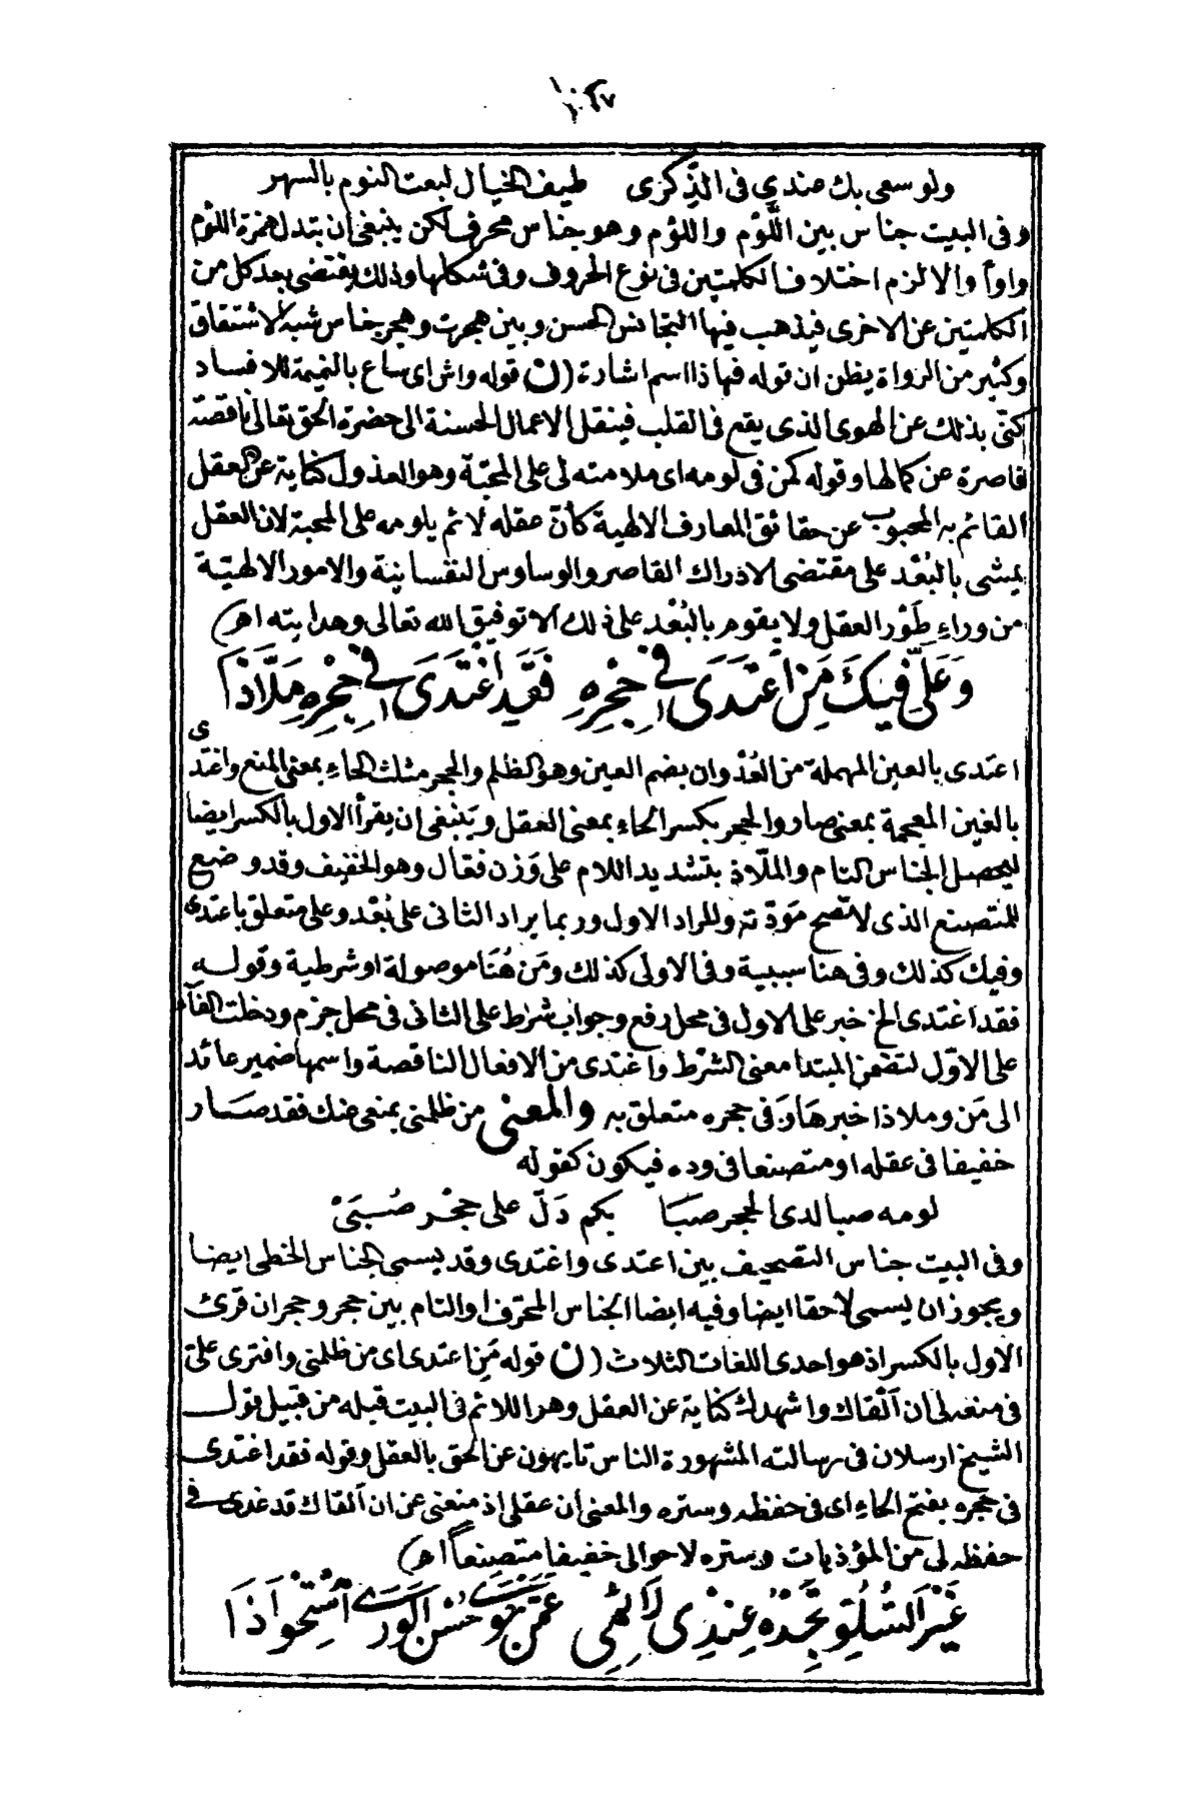 ولو سعى بك عندي في الذِّكرى طيف الخيال لبعت النوم بالسهر
وفى البيت جناس بين اللَّوْم واللؤم وهو جناس محرف لكن ينبغى ان تبدل همزة اللؤم
واوًا والا لزم اختلاف الكلمتين فى نوع الحروف وفى شكلها وذلك يقتضى بعد كل من
الكلمتين عن الاخرى فيذهب فيها التجانس الحسن وبين هجرت وهجر جناس شبه الاشتقاق
وكثير من الرواة يظن ان قوله فهاذا اسم اشارة (ن قوله واش اى ساع بالنميمة للافساد
كنّى بذلك عن الهوى الذى يقع فى القلب فينقل الاعمال الحسنة الى حضرة الحق تعالى ناقصة
قاصرة عن كمالها وقوله كمن فى لومه اى ملامته لى على المحبّة وهو العذول كناية عن العقل
القائم به المحجوب عن حقائق المعارف الالهية كأنّ عقله لائم يلومه على المحبة لان العقل
يمشى بالبُعْد على مقتضى الادراك القاصر والوساوس النفسانية والامور الالهيّة
من وراءِ طَوْر العقل ولا يقوم بالبُعْد على ذلك الا توفيق الله تعالى وهدايته اهـ)
وَعَلَىَّ فِيكَ مَنِ اعْتَدَى فِي حِجْرِهِ فَقَدِ اغْتَدَى فِي حِجْرِهِ مَلَّاذَا
اعتدى بالعين المهملة من العُدْوان بضم العين وهو الظلم والحجر مثلث الحاءِ بمعنى المنع واغتدى
بالغين المعجمة بمعنى صار والحجر بكسر الحاءِ بمعنى العقل وينبغى ان يقرأ الاول بالكسر ايضا
ليحصل الجناس التام والملّاذ بتشديد اللام على وَزن فعّال وهو الخفيف وقد وضع
للمتصنع الذى لا تصح مَودّته والمراد الاول وربما يراد الثانى على بُعْد وعلى متعلق باعتدى
وفيك كذلك وفى هنا سببية وفى الاولى كذلك ومَن هُنَا موصولة او شرطية وقوله
فقد اغتدى الخ خبر على الاول فى محل رفع وجواب شرط على الثانى فى محل جزم ودخلت الفآء
على الاوّل لتضمن المبتدا معنى الشرط واغتدى من الافعال الناقصة واسمها ضمير عائد
الى مَن وملاذا خبرها وَفى حجره متعلق به والمعنى من ظلمنى بمنعى عنك فقد صار
خفيفا فى عقله او متصنعا فى وده فيكون كقوله
لومه صبا لدى الحجر صبَا بكم دَلّ على حِجْر صُبَىْ
وفى البيت جناس التصحيف بين اعتدى واغتدى وقد يسمى الجناس الخطى ايضا
ويجوز ان يسمى لاحقا ايضا وفيه ايضا الجناس المحرّف او التام بين حجر وحجر ان قرئ
الاول بالكسر اذ هو احدى اللغات الثلاث (ن قوله مَن اعتدى اى من ظلمنى وافترى علىّ
فى منعه لى ان ألقاك واشهدك كناية عن العقل وهو اللائم فى البيت قبله من قبيل قول
الشيخ ارسلان فى رسالته المشهورة الناس تايهون عن الحق بالعقل وقوله فقد اغتدى
فى حَجره بفتح الحاءِ اى فى حفظه وستره والمعنى أن عقلى اذ منعنى عن ان ألقاك قد غدى فى
حفظه لى من المؤذيات وستره لاحوالى خفيفا متصنعاً اهـ)
غَيْرَ السُّلُوِّ تَجِدْهُ عِنْدِى لَائِمِى عَمَّنْ حَوَى حُسْنَ الوَرَى اسْتِحْوَاذَا